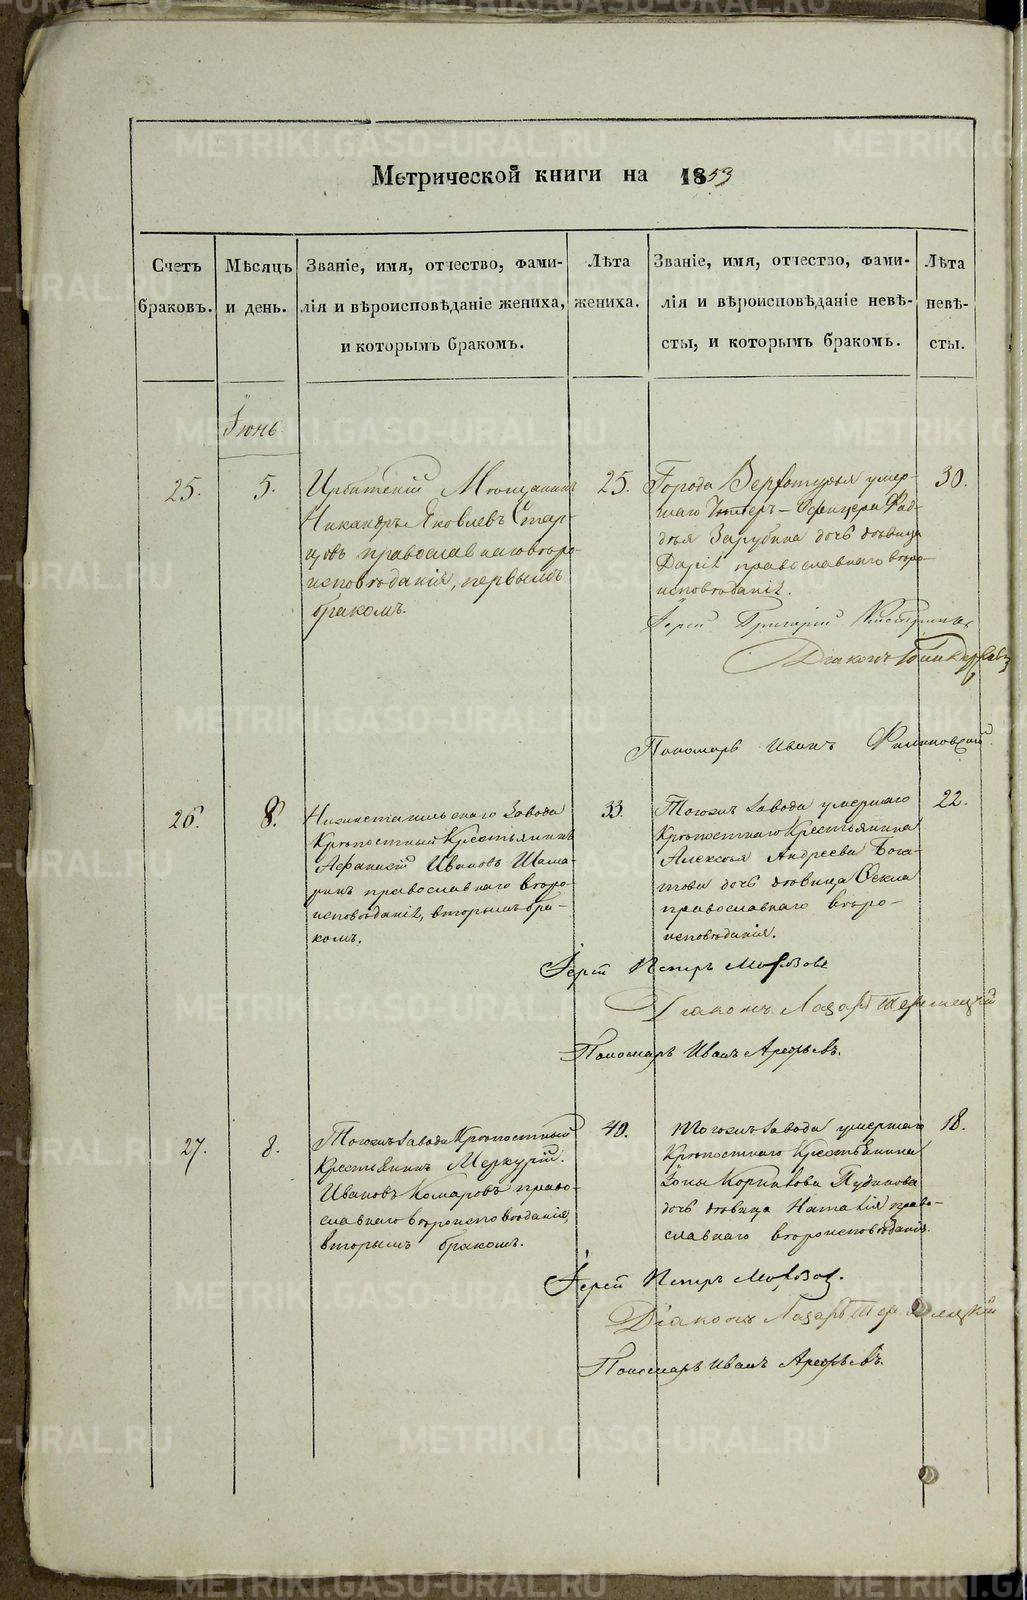 Метрической книги на 1853
Счетъ браковъ.
Мѣсяцъ и день.
Званіе, имя, отчество, фами-
лія и вѣроисповѣданіе жениха,
и которымъ бракомъ.
Лѣта
жениха.
Званіе, имя, отчество, фами-
лія и вѣроисповѣданіе невѣ-
сты, и которымъ бракомъ.
Лѣта
невѣ-
сты.
Іюнь
25.
5.
Ирбитскій Мѣщанинъ
Никандръ Яковлевъ Стар-
цовъ православнаго вѣро-
исповѣданія, первымъ
бракомъ.
25.
Города Верхотурья умер-
шаго Унтеръ-Офицера Фад-
дѣя Зарубина дочь дѣвица
Дарія православнаго вѣро-
исповѣданія.
30.
Іерей Григорій
Діаконъ
Пономарь Иванъ
26.
8.
Нижнетагильскаго Завода
Крѣпостный Крестьянинъ
Афанасій Ивановъ Шама-
ринъ православнаго вѣро-
исповѣданія, вторымъ бра-
комъ.
33.
Тогожъ Завода умершаго
Крѣпостнаго Крестьянина
Алексѣя Андреева Бога-
това дочь дѣвица Ѳекла
православнаго вѣро-
исповѣданія.
22.
Іерей Петръ
Діаконъ Лазарь
Пономарь Иванъ Арефьевъ.
27.
8.
Тогожъ Завода Крѣпостный
Крестьянинъ Меркурій
Ивановъ Комаровъ право-
славнаго вѣроисповѣданія,
вторымъ бракомъ.
40.
Тогожъ Завода умершаго
Крѣпостнаго Крестьянина
дочь дѣвица Наталія право-
славнаго вѣроисповѣданія.
18.
Іерей Петръ
Діаконъ Лазарь
Пономарь Иванъ Арефьевъ.
METRIKI.GASO-URAL.RU